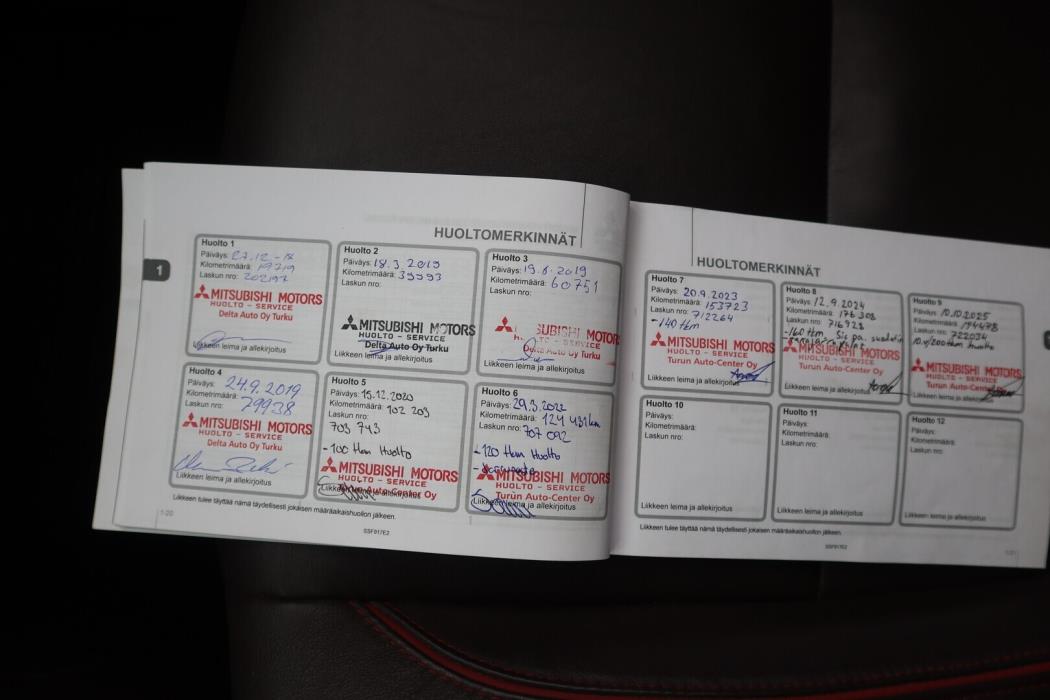 HUOLTOMERKINNÄT
1
Huolto 1
Päiväys: 27.12-18
Kilometrimäärä: 19219
Laskun nro: 202197
MITSUBISHI MOTORS
HUOLTO - SERVICE
Delta Auto Oy Turku
Liikkeen leima ja allekirjoitus
Huolto 2
Päiväys: 18.3.2019
Kilometrimäärä: 39993
Laskun nro:
MITSUBISHI MOTORS
HUOLTO - SERVICE
Delta Auto Oy Turku
Liikkeen leima ja allekirjoitus
Huolto 3
Päiväys: 19.6.2019
Kilometrimäärä: 60751
Laskun nro:
SUBISHI MOTORS
HUOLTO - SERVICE
Delta Auto Oy Turku
Liikkeen leima ja allekirjoitus
Huolto 4
Päiväys: 24.9.2019
Kilometrimäärä: 79938
Laskun nro:
MITSUBISHI MOTORS
HUOLTO - SERVICE
Delta Auto Oy Turku
Liikkeen leima ja allekirjoitus
Huolto 5
Päiväys: 15.12.2020
Kilometrimäärä: 102 209
Laskun nro:
703 743
-100 tkm Huolto
MITSUBISHI MOTORS
HUOLTO - SERVICE
Turun Auto-Center Oy
Liikkeen leima ja allekirjoitus
Huolto 6
Päiväys: 29.3.2022
Kilometrimäärä: 124 431km
Laskun nro: 707 092
-120 tkm Huolto
MITSUBISHI MOTORS
HUOLTO - SERVICE
Turun Auto-Center Oy
Liikkeen leima ja allekirjoitus
Liikkeen tulee täyttää nämä täydellisesti jokaisen määräaikaishuollon jälkeen.
1-20
SSF917E2
HUOLTOMERKINNÄT
Huolto 7
Päiväys: 20.9.2023
Kilometrimäärä: 153723
Laskun nro: 712264
-140 tkm
MITSUBISHI MOTORS
HUOLTO - SERVICE
Turun Auto-Center Oy
Liikkeen leima ja allekirjoitus
Huolto 8
Päiväys: 12.9.2024
Kilometrimäärä: 176 308
Laskun nro: 716921
-160 tkm, Sis pa.
MITSUBISHI MOTORS
HUOLTO - SERVICE
Turun Auto-Center Oy
Liikkeen leima ja allekirjoitus
Huolto 9
Päiväys: 10.10.2025
Kilometrimäärä: 194478
Laskun nro: 722034
10.v/200tkm huolto
MITSUBISHI MOTORS
HUOLTO - SERVICE
Turun Auto-Center Oy
Liikkeen leima ja allekirjoitus
Huolto 10
Päiväys:
Kilometrimäärä:
Laskun nro:
Liikkeen leima ja allekirjoitus
Huolto 11
Päiväys:
Kilometrimäärä:
Laskun nro:
Liikkeen leima ja allekirjoitus
Huolto 12
Päiväys:
Kilometrimäärä:
Laskun nro:
Liikkeen leima ja allekirjoitus
Liikkeen tulee täyttää nämä täydellisesti jokaisen määräaikaishuollon jälkeen.
SSF917E2
1-21